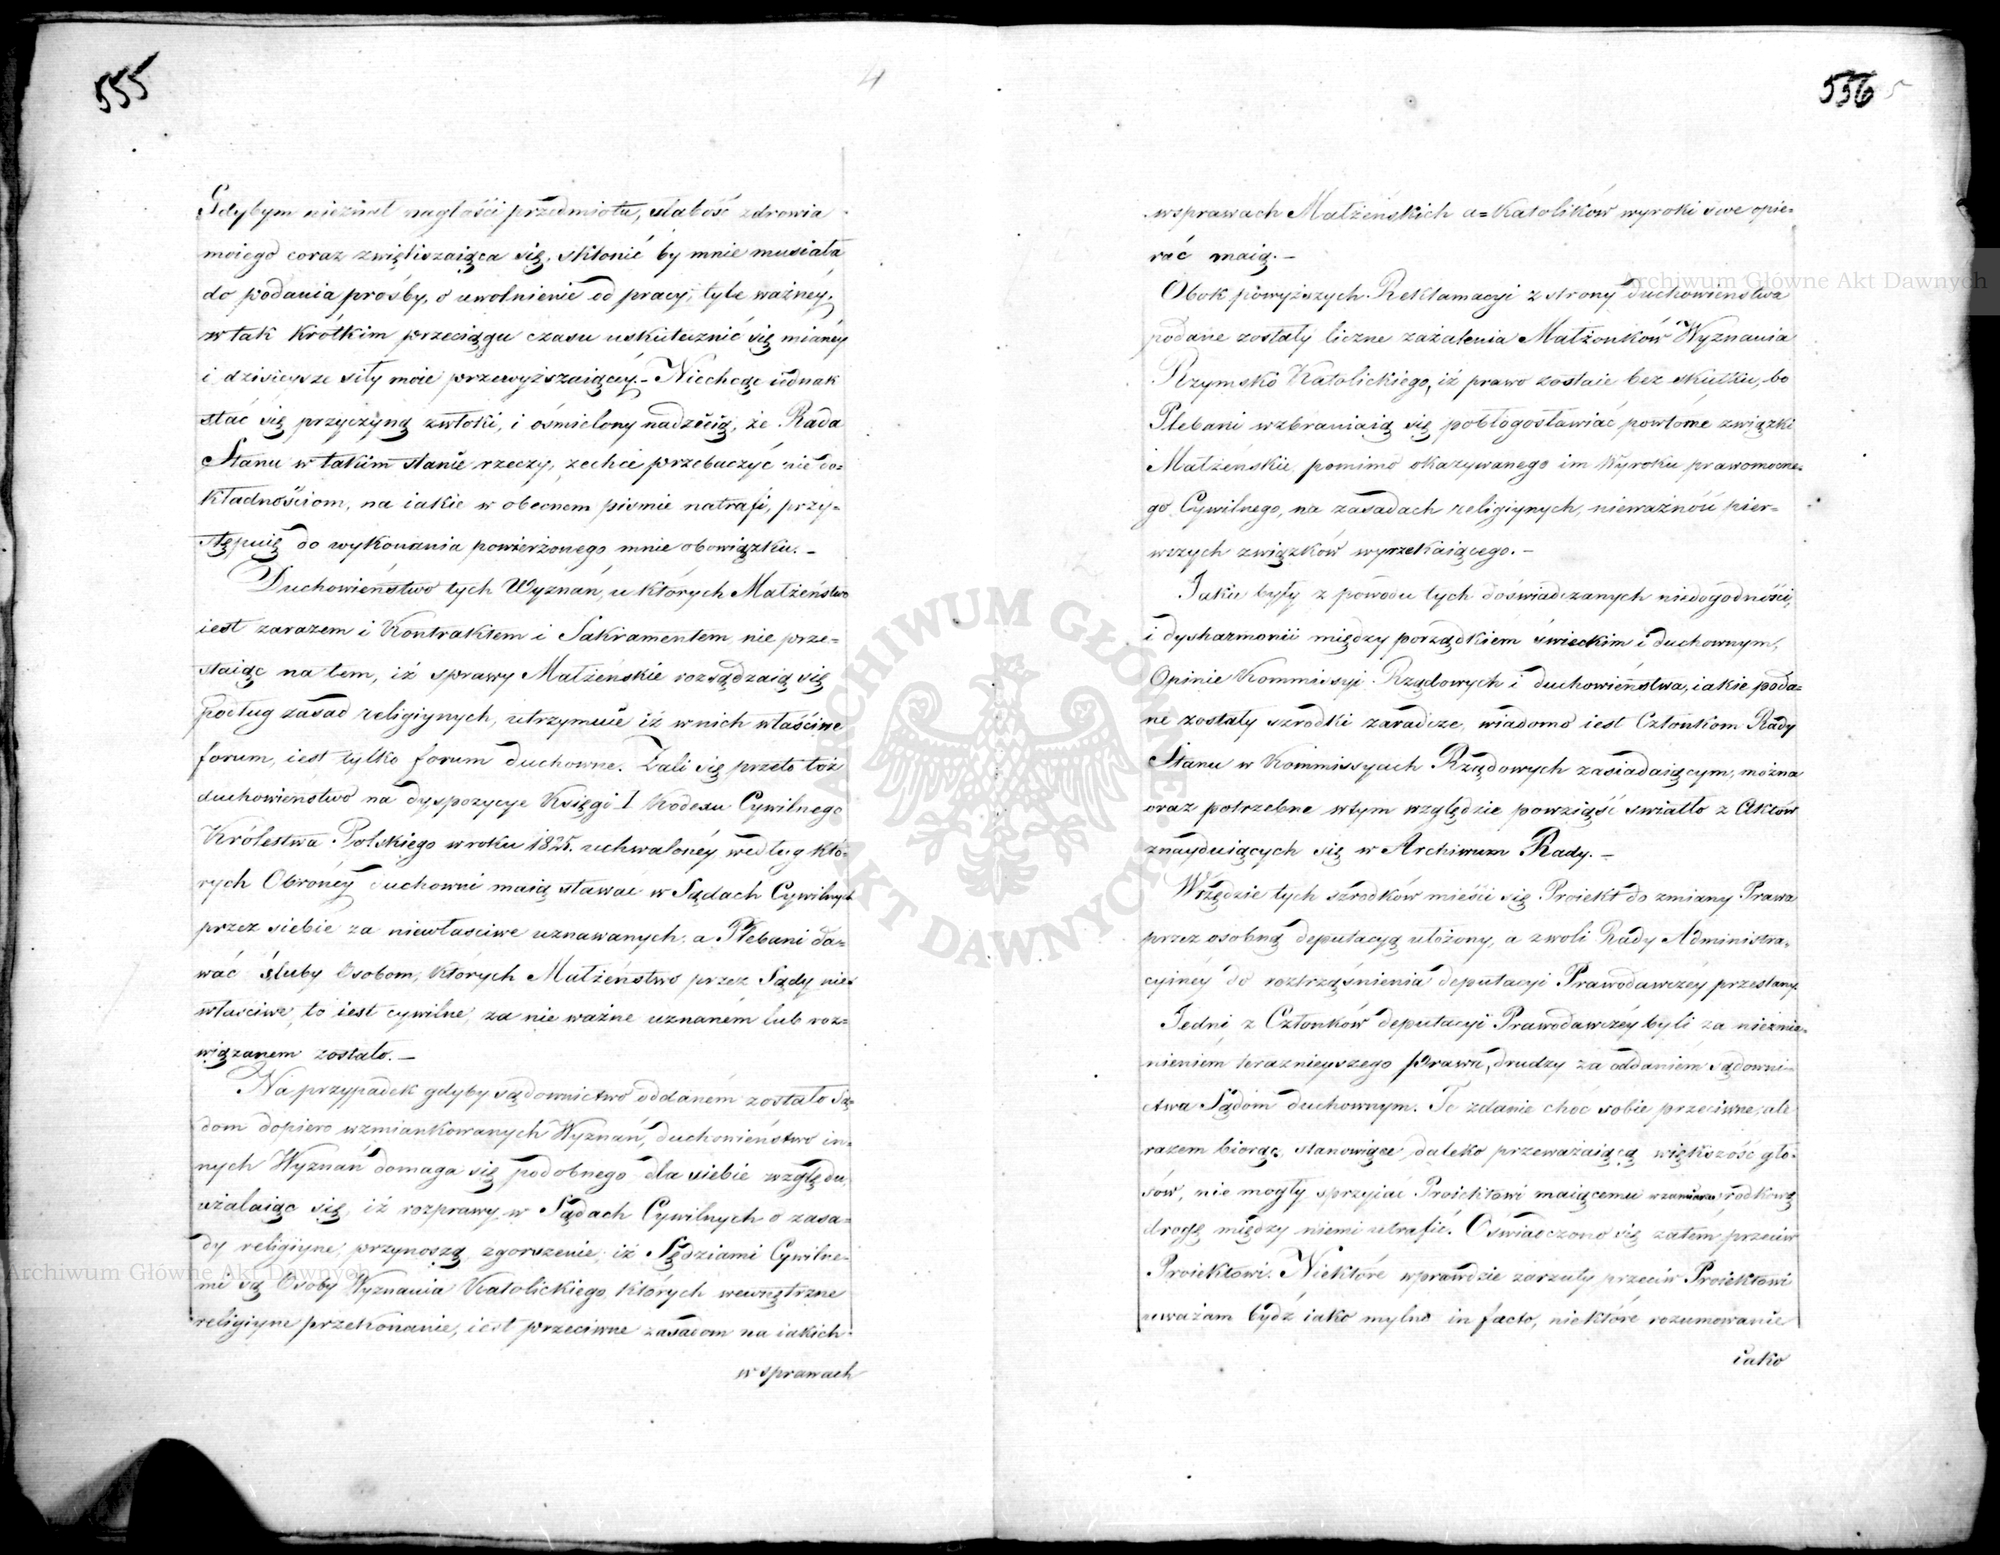 555
4
Gdybym nieznał nagłości przedmiotu, słabość zdrowia
moiego coraz zwiększaiąca się, skłonić by mnie musiała
do podania prośby, o uwolnienie od pracy, tyle ważnéy,
w tak krótkim przeciągu czasu uskutecznić się mianéy
i dzisieysze siły moie przewyższaiącéy. – Niechcąc iednak
stać się przyczyną zwłoki, i ośmielony nadzieią, że Rada
Stanu w takim stanie rzeczy, zechce przebaczyć niedo=
kładnościom, na iakie w obecnem pismie natrafi, przy=
stępuię do wykonania powierzonego mnie obowiązku. –
Duchowieństwo tych Wyznań, u których Małżeństwo
iest zarazem i Kontraktem i Sakramentem, nie prze=
staiąc na tem, iż sprawy Małżeńskie rozsądzaią się
podług zasad religiynych, utrzymuie iż w nich właściwe
forum, iest tylko forum duchowne. Żali się przeto toż
duchowieństwo na dyspozycye Księgi I Kodexu Cywilnego
Królestwa Polskiego w roku 1825. uchwalonéy według któ=
rych Obrońcy duchowni maią stawać w Sądach Cywilnych
przez siebie za niewłaściwe uznawanych, a Plebani da=
wać śluby Osobom, których Małżeństwo przez Sądy nie=
właściwe, to iest cywilne, za nie ważne uznaném lub roz=
wiązanem zostało. –
Na przypadek gdyby sądownictwo oddaném zostało Są=
dom dopiero wzmiankowanych Wyznań, duchowieństwo in=
nych Wyznań domaga się podobnego dla siebie względu,
użalaiąc się, iż rozprawy w Sądach Cywilnych o zasa=
dy religiyne, przynoszą zgorszenie, iż Sędziami Cywilne=
mi są Osoby Wyznania Katolickiego, których wewnętrzne
religiyne przekonanie, iest przeciwne zasadom na iakich
w sprawach
556
5
w sprawach Małżeńskich a=Katolików wyroki swe opie=
rać maią. –
Obok powyższych Reklamacyi z strony duchowieństwa
podane zostały liczne zażalenia Małżonków Wyznania
Rzymsko Katolickiego, iż prawo zostaie bez skutku, bo
Plebani wzbraniaią się pobłogosławiać powtórne związki
Małżeńskie, pomimo okazywanego im Wyroku prawomocne=
go Cywilnego, na zasadach religiynych, nieważność pier=
wszych związków wyrzekaiącego. –
Jakie były z powodu tych doświadczanych niedogodności,
i dysharmonii między porządkiem świeckim i duchownym,
Opinie Kommissyi Rządowych i duchowieństwa, iakie poda=
ne zostały szrodki zaradcze, wiadomo iest Członkom Rady
Stanu w Kommissyach Rządowych zasiadaiącym, można
oraz potrzebne w tym względzie powziąść swiatło z Aktów
znayduiących się w Archiwum Rady. –
W rzędzie tych szrodków mieści się Proiekt do zmiany Prawa
przez osobną deputacyą ułożony, a z woli Rady Administra=
cyinéy do roztrząśnienia deputacyi Prawodawczéy przesłany.
Jedni z Członków deputacyi Prawodawczéy byli za niezmie=
nieniem teraznieyszego Prawa, drudzy za oddaniem sądowni=
ctwa Sądom duchownym. Te zdanie choć sobie przeciwne, ale
razem biorąc, stanowiące daleko przeważaiącą większość gło=
sów, nie mogły sprzyiać Proiektowi maiącemu w zamiarze srodkową
drogę między niemi utrafić. Oświadczono się zatém przeciw
Proiektowi. Niektóre wprawdzie zarzuty przeciw Proiektowi
uważam bydź iako mylne in facto, niektóre rozumowanie
iako
Archiwum Główne Akt Dawnych
Archiwum Główne Akt Dawnych
ARCHIWUM GŁÓWNE AKT DAWNYCH